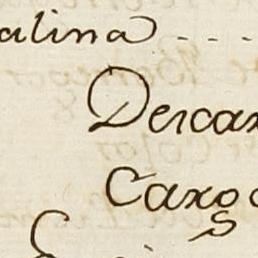 alina ....
Descar
Cargo